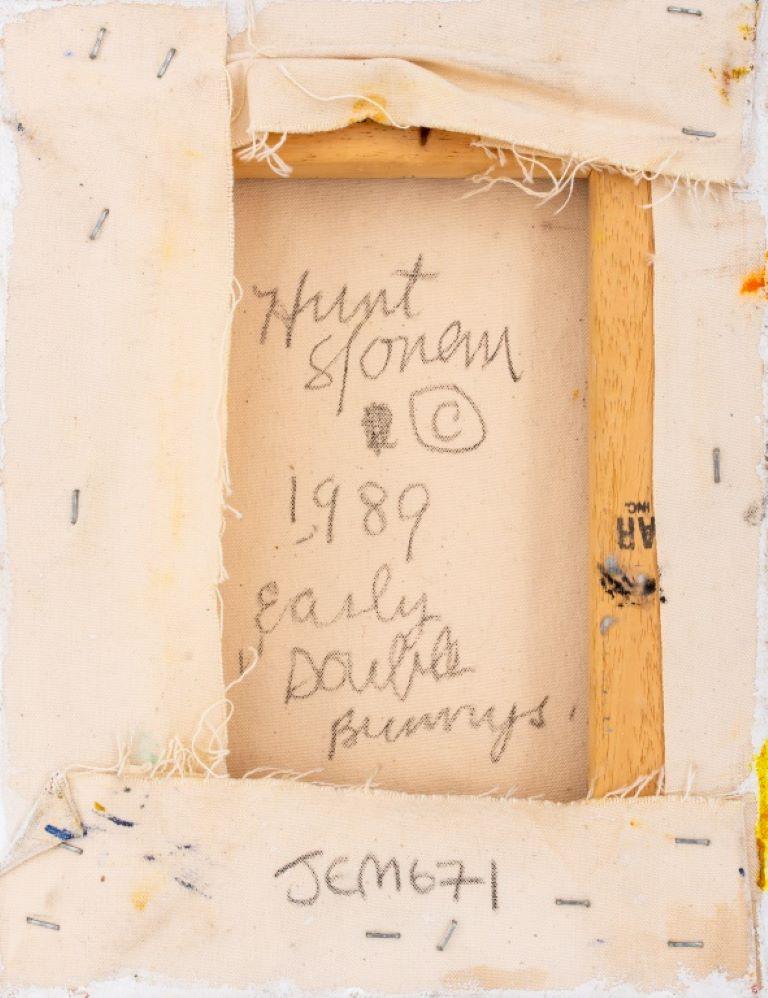 Hunt
Slonem
©
1989
Early
"Double
Bunnys"
JEM671
AR
INC.